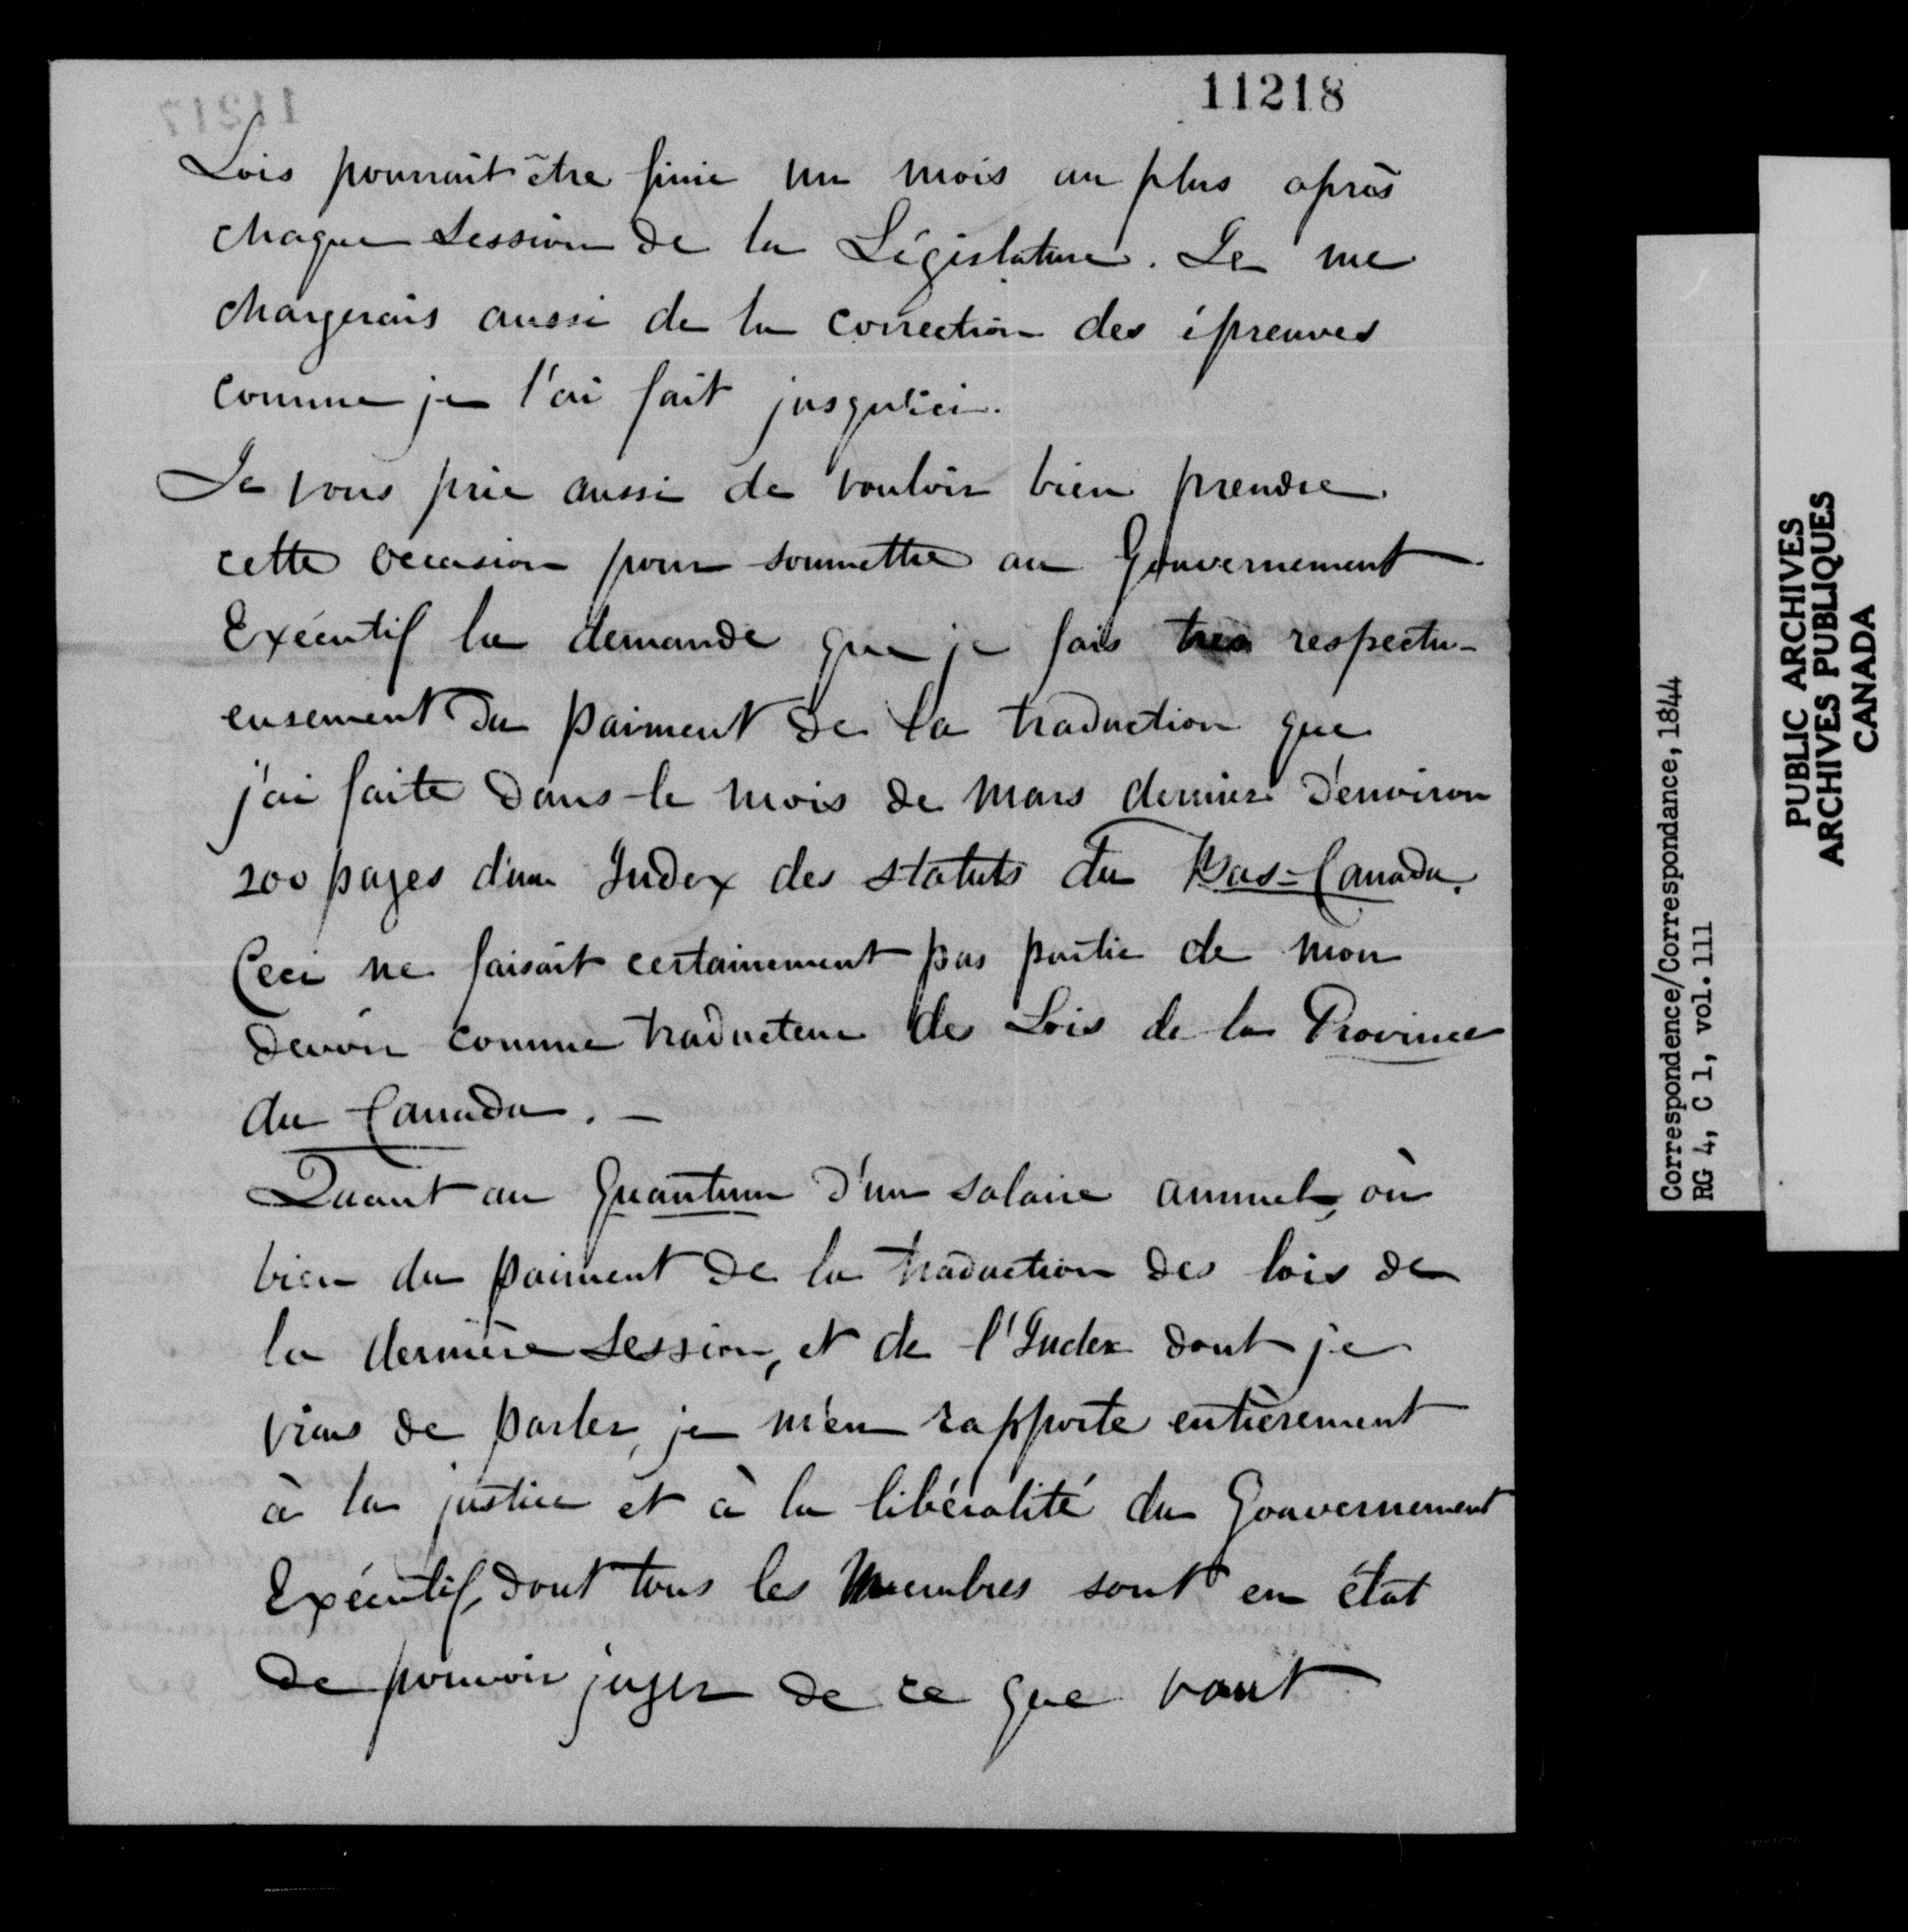 11218
11217
Lois pourrait être finie un mois au plus après
chaque Session de la Législature. Je me
chargerais aussi de la correction des épreuves
comme je l'ai fait jusqu'ici.
Je vous prie aussi de vouloir bien prendre
cette occasion pour soumettre au Gouvernement
Exécutif la demande que je fais très respectu-
eusement du paiment de la traduction que
j'ai faite dans le mois de Mars dernier d'environ
200 pages d'un Index des Statuts du Bas=Canada.
Ceci ne faisait certainement pas partie de mon
devoir comme traducteur des Lois de la Province
du Canada. —
Quant au Quantum d'un salaire annuel, ou
bien du paiment de la traduction des lois de
la dernière Session, et de l'Index dont je
viens de parler, je m'en rapporte entièrement
à la justice et à la libéralité du Gouvernement
Exécutif, dont tous les Membres sont en état
de pouvoir juger de ce que vaut
Correspondence/Correspondance, 1844
RG 4, C 1, vol. 111
PUBLIC ARCHIVES
ARCHIVES PUBLIQUES
CANADA